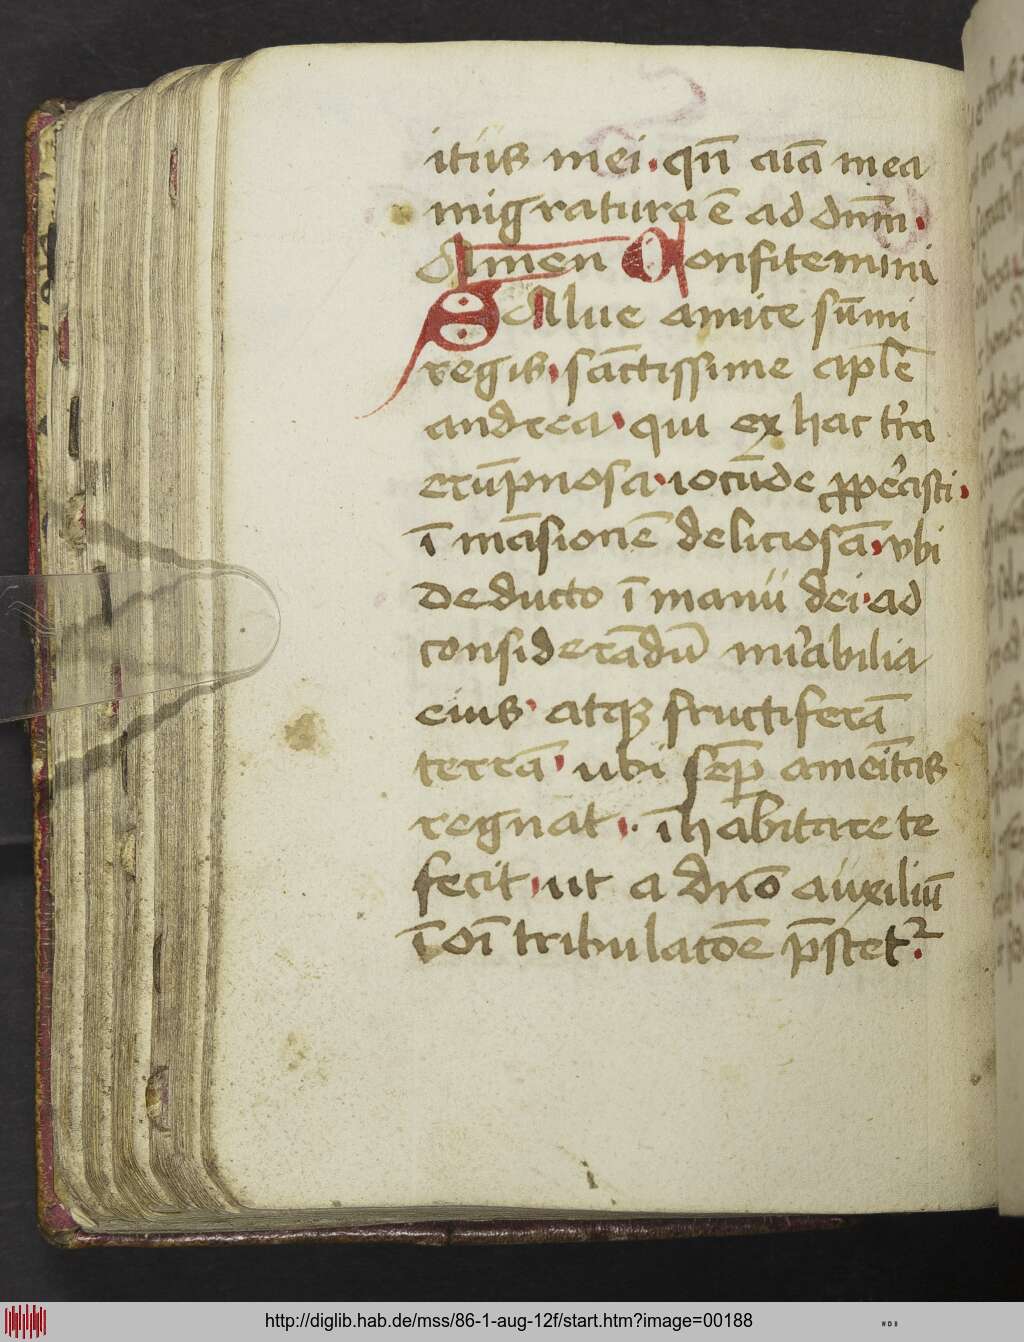 itūs mei. qn̄ aīa mea
migratura ē ad dn̄m.
Amen Confitemini
Salue amice sūmi
regis. sāctissime aplē
andrea. qui ex hac tr̄a
erūpnosa. iocūde
ī māsionē deliciosā. vbi
deducto ī manu dei. ad
considerādū mirabilia
eius. atqꝫ fructiferā
terrā. ubi sēp amenitas
regnat. īhabitare te
fecit. ut a dn̄o auxiliū
ī oī tribulacōe p̄stet².
http://diglib.hab.de/mss/86-1-aug-12f/start.htm?image=00188